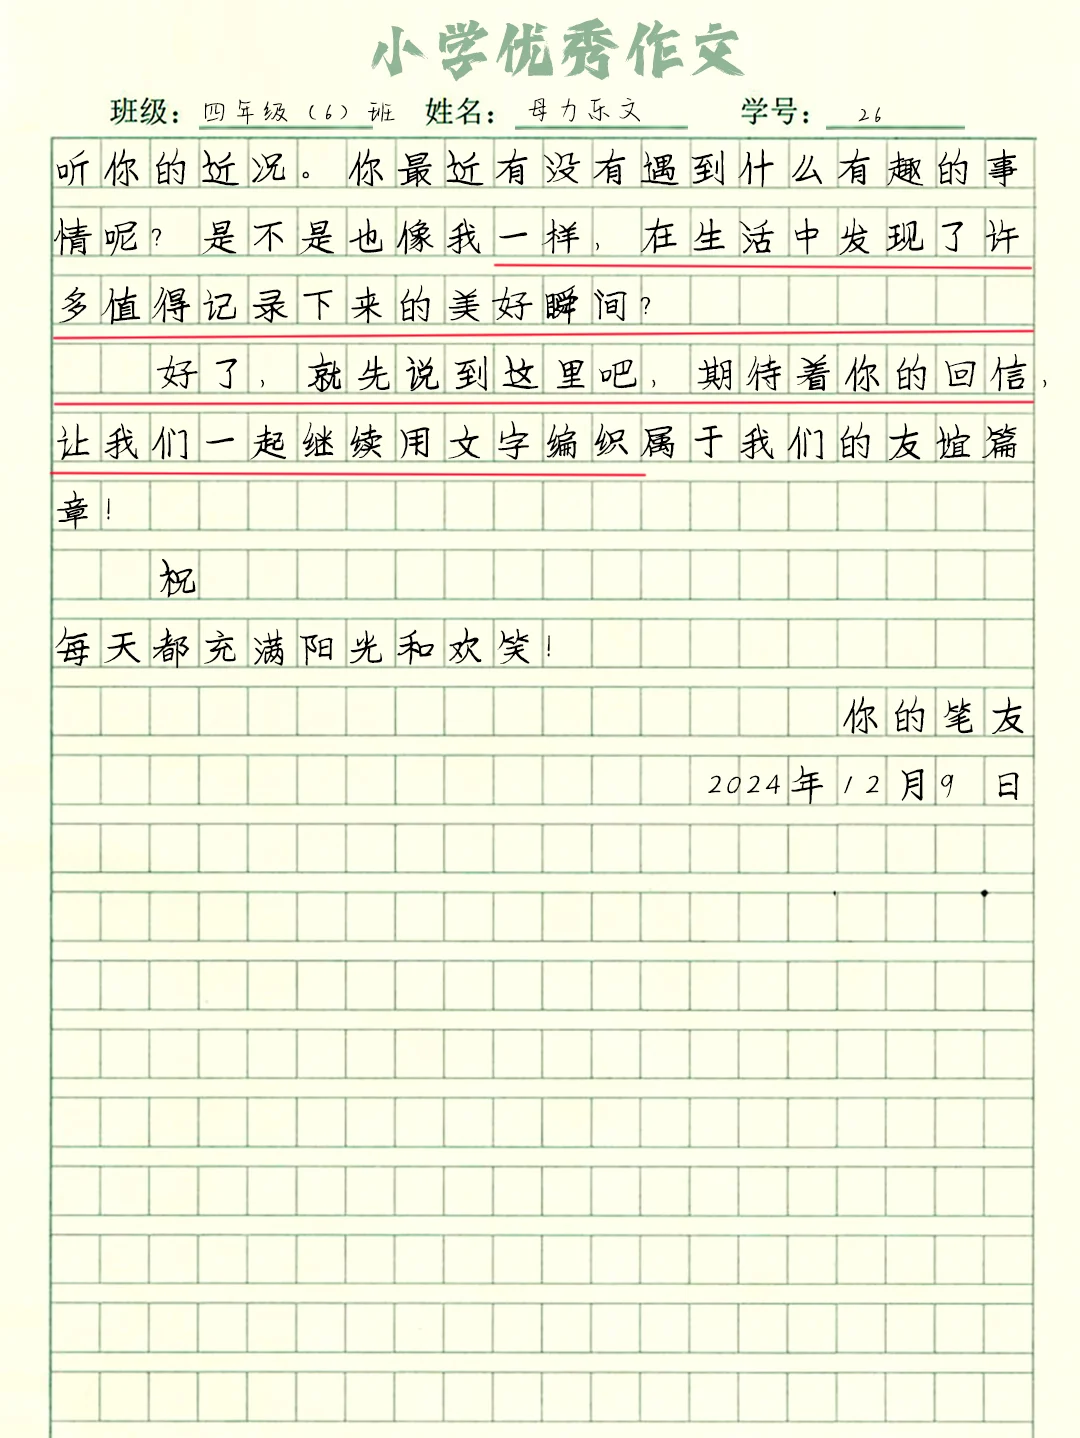 小学优秀作文
班级：四年级（6）班 姓名：母力乐文 学号：26
听你的近况。你最近有没有遇到什么有趣的事
情呢？是不是也像我一样，在生活中发现了许
多值得记录下来的美好瞬间？
好了，就先说到这里吧，期待着你的回信，
让我们一起继续用文字编织属于我们的友谊篇
章！
祝
每天都充满阳光和欢笑！
你的笔友
2024年12月9 日